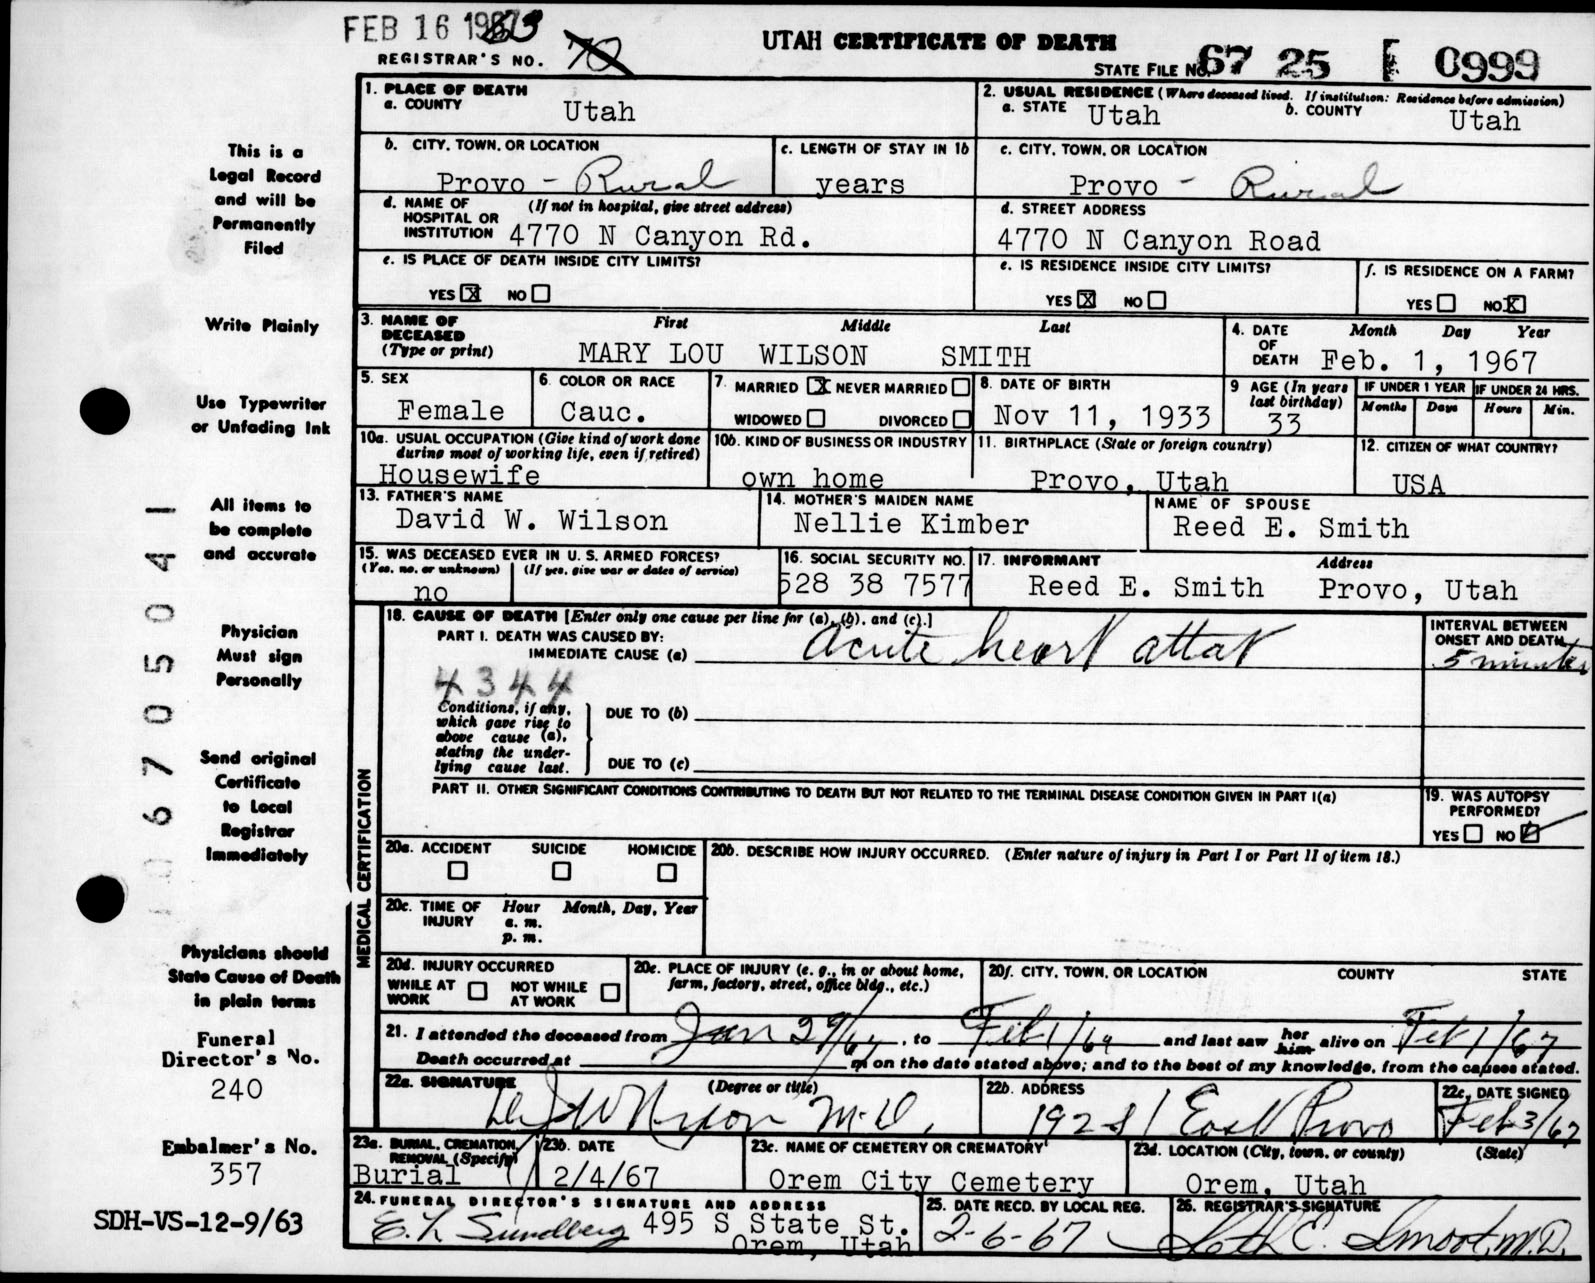 FEB 16 1967
REGISTRAR'S NO. 70
UTAH CERTIFICATE OF DEATH
STATE FILE NO. 67 25 0999
This is a
Legal Record
and will be
Permanently
Filed
Write Plainly
Use Typewriter
or Unfading Ink
All items to
be complete
and accurate
Physician
Must sign
Personally
Send original
Certificate
to Local
Registrar
Immediately
Physicians should
State Cause of Death
in plain terms
Funeral
Director's No.
240
Embalmer's No.
357
SDH-VS-12-9/63
06705041
1. PLACE OF DEATH
a. COUNTY Utah
2. USUAL RESIDENCE (Where deceased lived. If institution: Residence before admission)
a. STATE Utah b. COUNTY Utah
b. CITY, TOWN, OR LOCATION
Provo - Rural
c. LENGTH OF STAY IN 1b
years
c. CITY, TOWN, OR LOCATION
Provo - Rural
d. NAME OF HOSPITAL OR INSTITUTION (If not in hospital, give street address)
4770 N Canyon Rd.
d. STREET ADDRESS
4770 N Canyon Road
e. IS PLACE OF DEATH INSIDE CITY LIMITS?
YES X NO
e. IS RESIDENCE INSIDE CITY LIMITS?
YES X NO
f. IS RESIDENCE ON A FARM?
YES NO X
3. NAME OF DECEASED (Type or print) First Middle Last
MARY LOU WILSON SMITH
4. DATE OF DEATH Month Day Year
Feb. 1, 1967
5. SEX
Female
6. COLOR OR RACE
Cauc.
7. MARRIED X NEVER MARRIED
WIDOWED DIVORCED
8. DATE OF BIRTH
Nov 11, 1933
9 AGE (In years last birthday)
33
IF UNDER 1 YEAR
Months Days
IF UNDER 24 HRS.
Hours Min.
10a. USUAL OCCUPATION (Give kind of work done during most of working life, even if retired)
Housewife
10b. KIND OF BUSINESS OR INDUSTRY
own home
11. BIRTHPLACE (State or foreign country)
Provo, Utah
12. CITIZEN OF WHAT COUNTRY?
USA
13. FATHER'S NAME
David W. Wilson
14. MOTHER'S MAIDEN NAME
Nellie Kimber
NAME OF SPOUSE
Reed E. Smith
15. WAS DECEASED EVER IN U. S. ARMED FORCES?
(Yes, no, or unknown) (If yes, give war or dates of service)
no
16. SOCIAL SECURITY NO.
528 38 7577
17. INFORMANT Address
Reed E. Smith Provo, Utah
MEDICAL CERTIFICATION
18. CAUSE OF DEATH [Enter only one cause per line for (a), (b), and (c).]
PART I. DEATH WAS CAUSED BY:
IMMEDIATE CAUSE (a) acute heart attak
INTERVAL BETWEEN ONSET AND DEATH
5 minutes
4344
Conditions, if any,
which gave rise to
above cause (a),
stating the under-
lying cause last.
DUE TO (b)
DUE TO (c)
PART II. OTHER SIGNIFICANT CONDITIONS CONTRIBUTING TO DEATH BUT NOT RELATED TO THE TERMINAL DISEASE CONDITION GIVEN IN PART I(a)
19. WAS AUTOPSY PERFORMED?
YES NO
20a. ACCIDENT SUICIDE HOMICIDE
20b. DESCRIBE HOW INJURY OCCURRED. (Enter nature of injury in Part I or Part II of item 18.)
20c. TIME OF INJURY Hour Month, Day, Year
a. m.
p. m.
20d. INJURY OCCURRED
WHILE AT WORK NOT WHILE AT WORK
20e. PLACE OF INJURY (e. g., in or about home, farm, factory, street, office bldg., etc.)
20f. CITY, TOWN, OR LOCATION COUNTY STATE
21. I attended the deceased from Jan 29/67, to Feb 1/67 and last saw her him alive on Feb 1/67
Death occurred at m on the date stated above; and to the best of my knowledge, from the causes stated.
22a. SIGNATURE (Degree or title)
M.D.
22b. ADDRESS
192 S 1 East Provo
22c. DATE SIGNED
Feb 3/67
23a. BURIAL, CREMATION, REMOVAL (Specify)
Burial
23b. DATE
2/4/67
23c. NAME OF CEMETERY OR CREMATORY
Orem City Cemetery
23d. LOCATION (City, town, or county) (State)
Orem, Utah
24. FUNERAL DIRECTOR'S SIGNATURE AND ADDRESS
E. L. Sundberg 495 S State St.
Orem, Utah
25. DATE RECD. BY LOCAL REG.
2-6-67
26. REGISTRAR'S SIGNATURE
Seth E. Smoot, M.D.